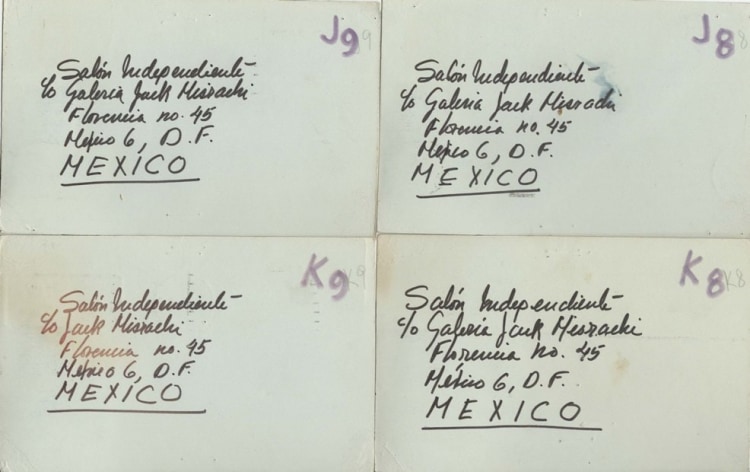 J9
Salón Independiente
c/o Galeria Jack Misrachi
Florencia no. 45
Mexico 6, D.F.
MEXICO
J8
Salón Independiente
c/o Galeria Jack Misrachi
Florencia no. 45
Mexico 6, D.F.
MEXICO
K9 K9
Salón Independiente
c/o Jack Misrachi
Florencia no. 45
Mexico 6, D.F.
MEXICO
K8 K8
Salón Independiente
c/o Galeria Jack Misrachi
Florencia no. 45
México 6, D.F.
MEXICO